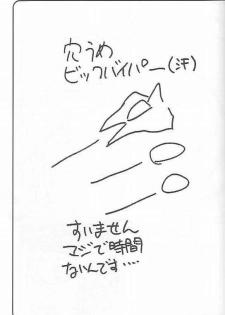 穴うめ
ビックバイパー(汗)
すいません
マジで時間
ないんです‥‥